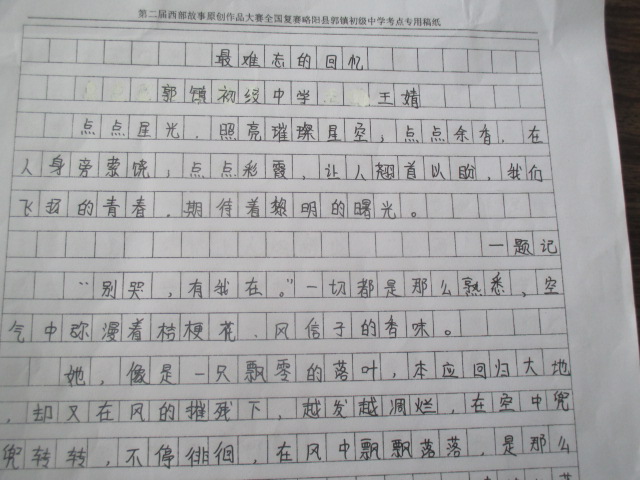 第二届西部故事原创作品大赛全国复赛略阳县郭镇初级中学考点专用稿纸
最难忘的回忆
郭镇初级中学 王婧
点点星光，照亮璀璨星空，点点余香，在
人身旁萦饶，点点彩霞，让人翘首以盼，我们
飞扬的青春，期待着黎明的曙光。
一题记
“别哭，有我在。”一切都是那么熟悉，空
气中弥漫着桔梗花、风信子的香味。
她，像是一只飘零的落叶，本应回归大地
，却又在风的摧残下，越发越凋烂，在空中兜
兜转转，不停徘徊，在风中飘飘落落，是那么